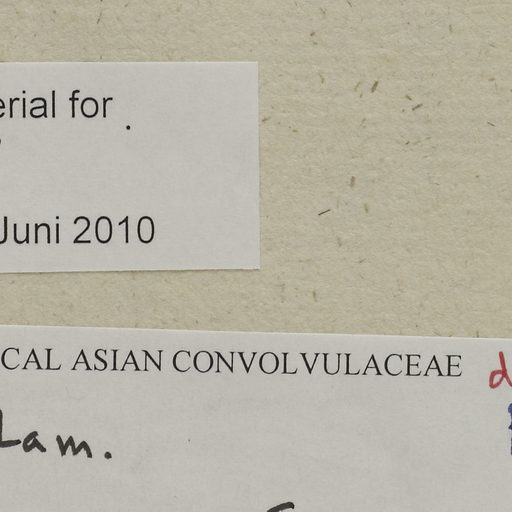 erial for
Juni 2010
CAL ASIAN CONVOLVULACEAE d
Lam.